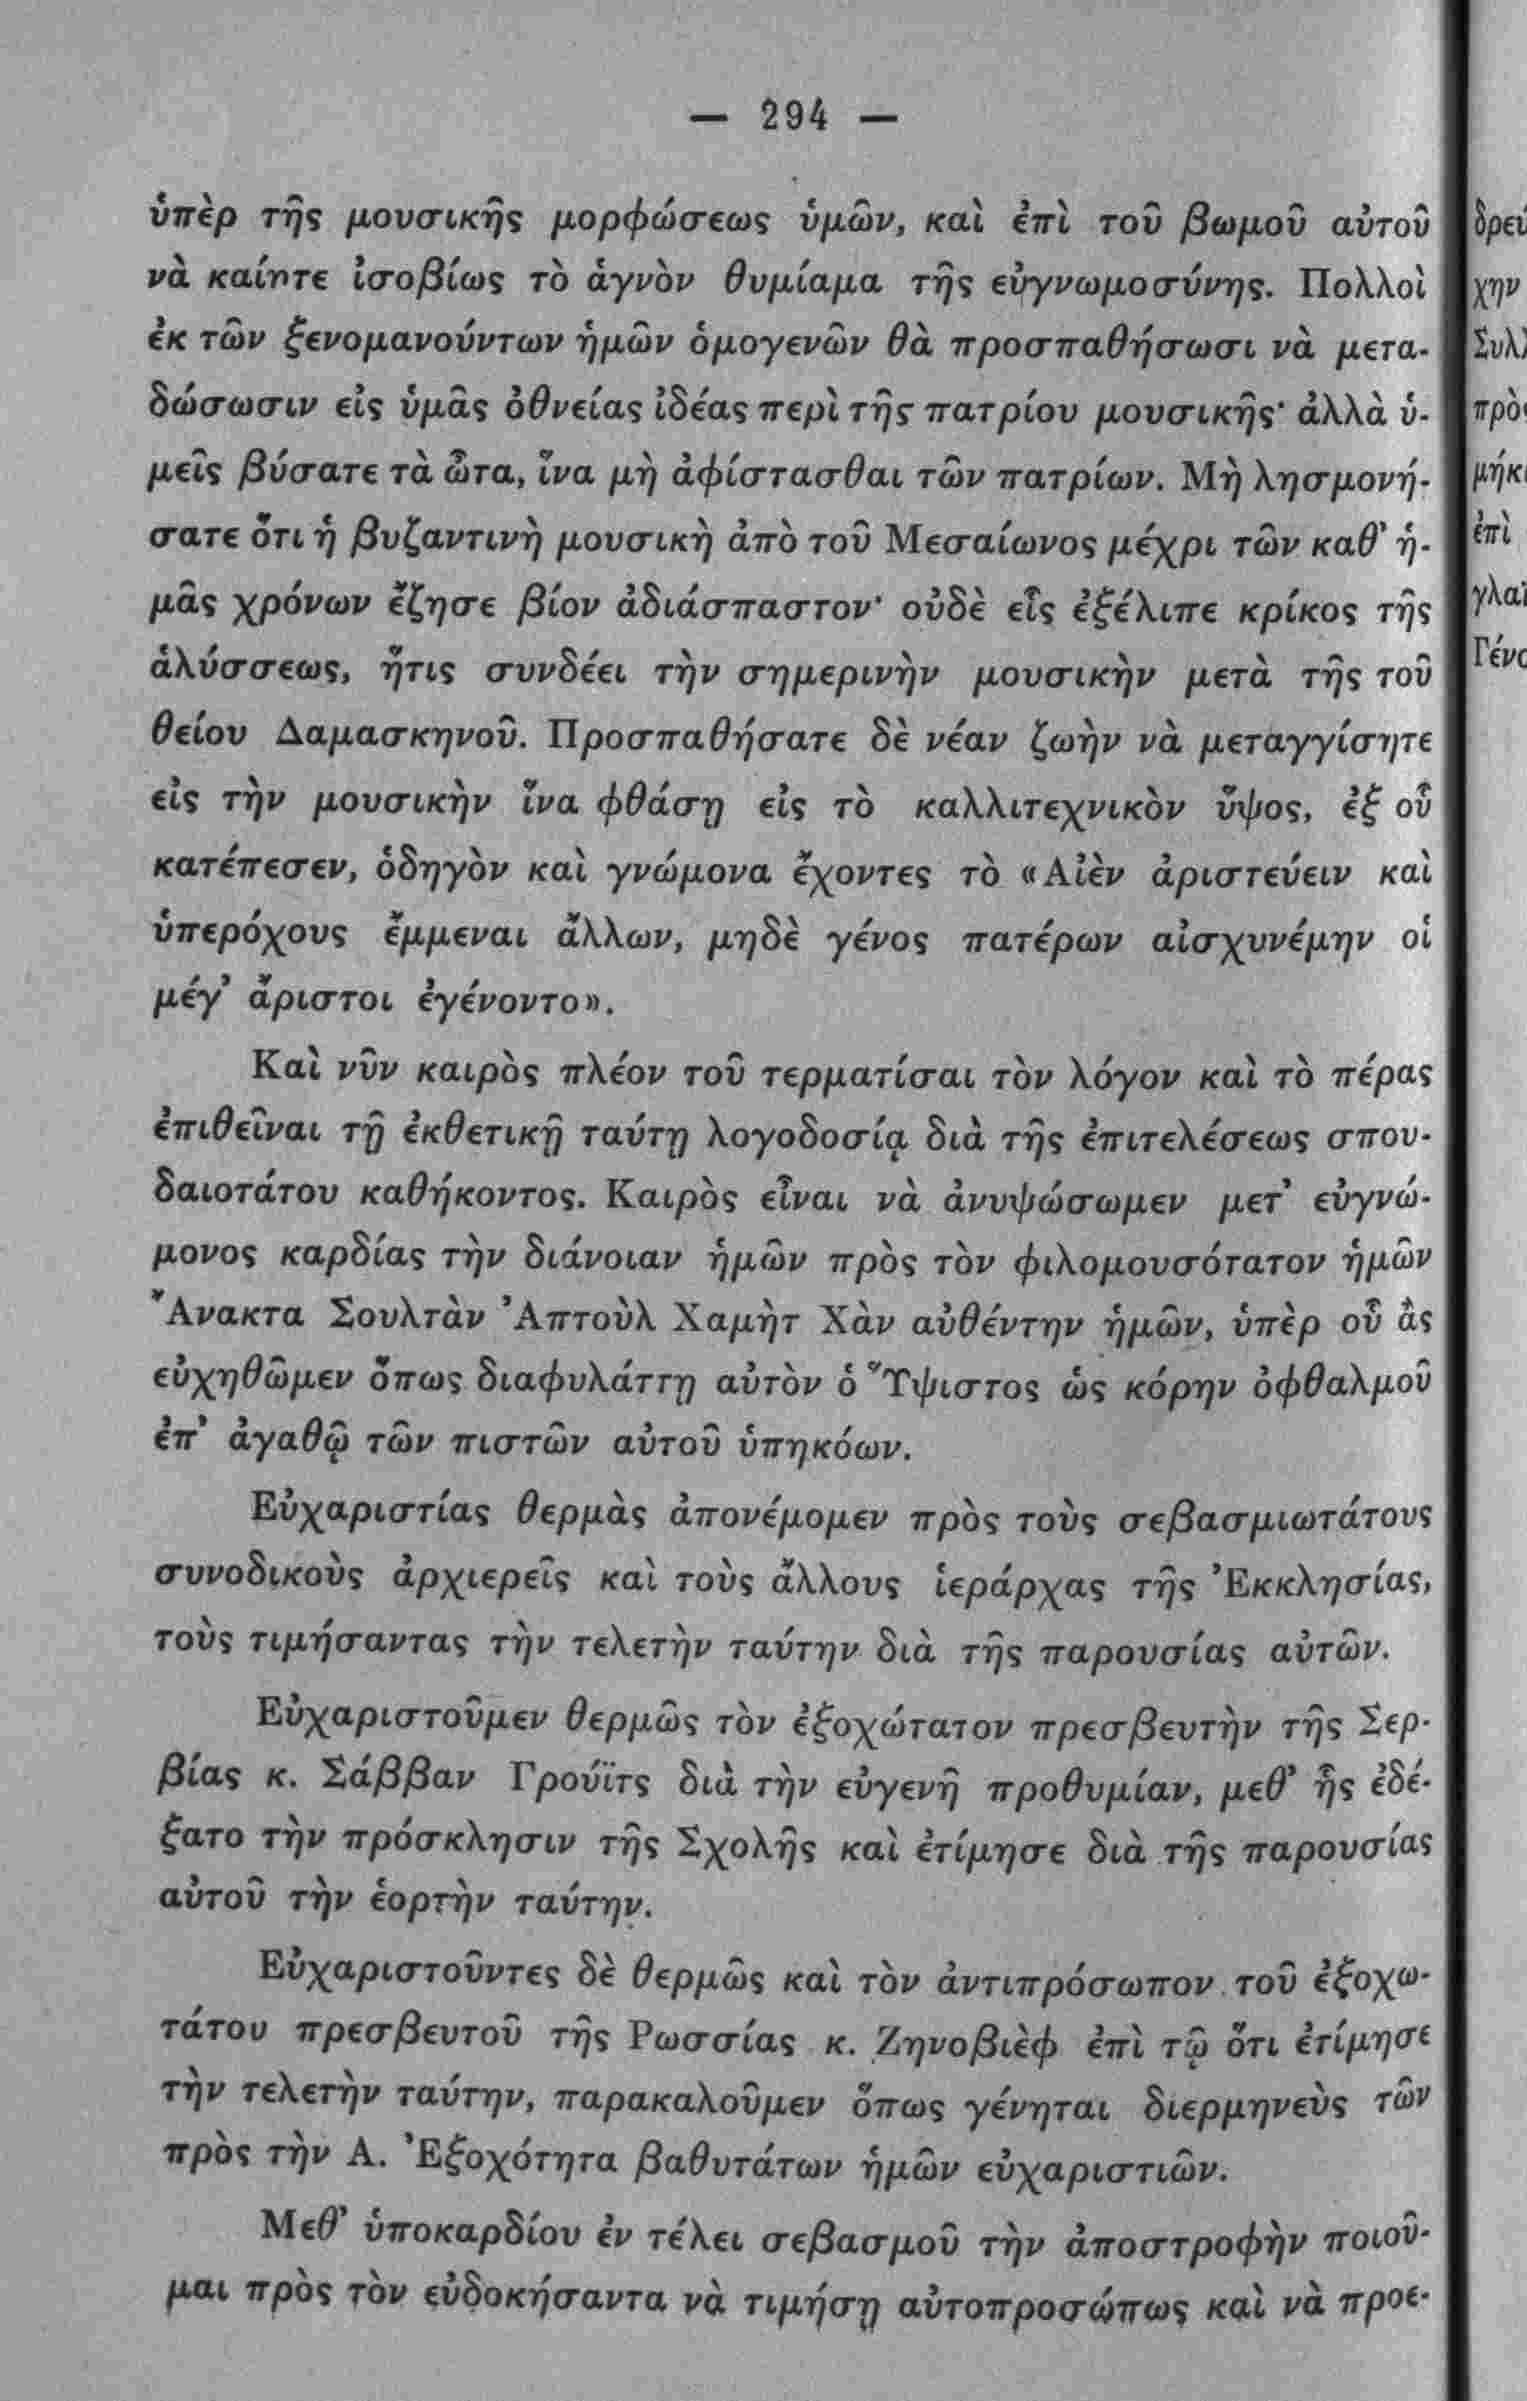 — 294 —
ὑπὲρ τῆς μουσικῆς μορφώσεως ὑμῶν, καὶ ἐπὶ τοῦ βωμοῦ αὐτοῦ
νὰ καίητε ἰσοβίως τὸ ἁγνὸν θυμίαμα τῆς εὐγνωμοσύνης. Πολλοὶ
ἐκ τῶν ξενομανούντων ἡμῶν ὁμογενῶν θὰ προσπαθήσωσι νὰ μετα-
δώσωσιν εἰς ὑμᾶς ὀθνείας ἰδέας περὶ τῆς πατρίου μουσικῆς· ἀλλὰ ὑ-
μεῖς βύσατε τὰ ὦτα, ἵνα μὴ ἀφίστασθαι τῶν πατρίων. Μὴ λησμονή-
σατε ὅτι ἡ βυζαντινὴ μουσικὴ ἀπὸ τοῦ Μεσαίωνος μέχρι τῶν καθ' ἡ-
μᾶς χρόνων ἔζησε βίον ἀδιάσπαστον· οὐδὲ εἷς ἐξέλιπε κρίκος τῆς
ἁλύσσεως, ἥτις συνδέει τὴν σημερινὴν μουσικὴν μετὰ τῆς τοῦ
θείου Δαμασκηνοῦ. Προσπαθήσατε δὲ νέαν ζωὴν νὰ μεταγγίσητε
εἰς τὴν μουσικὴν ἵνα φθάσῃ εἰς τὸ καλλιτεχνικὸν ὕψος, ἐξ οὗ
κατέπεσεν, ὁδηγὸν καὶ γνώμονα ἔχοντες τὸ «Αἰὲν ἀριστεύειν καὶ
ὑπερόχους ἔμμεναι ἄλλων, μηδὲ γένος πατέρων αἰσχυνέμην οἱ
μέγ' ἄριστοι ἐγένοντο».
Καὶ νῦν καιρὸς πλέον τοῦ τερματίσαι τὸν λόγον καὶ τὸ πέρας
ἐπιθεῖναι τῇ ἐκθετικῇ ταύτῃ λογοδοσίᾳ διὰ τῆς ἐπιτελέσεως σπου-
δαιοτάτου καθήκοντος. Καιρὸς εἶναι νὰ ἀνυψώσωμεν μετ' εὐγνώ-
μονος καρδίας τὴν διάνοιαν ἡμῶν πρὸς τὸν φιλομουσότατον ἡμῶν
Ἄνακτα Σουλτὰν Ἀπτοὺλ Χαμὴτ Χὰν αὐθέντην ἡμῶν, ὑπὲρ οὗ ἂς
εὐχηθῶμεν ὅπως διαφυλάττῃ αὐτὸν ὁ Ὕψιστος ὡς κόρην ὀφθαλμοῦ
ἐπ' ἀγαθῷ τῶν πιστῶν αὐτοῦ ὑπηκόων.
Εὐχαριστίας θερμὰς ἀπονέμομεν πρὸς τοὺς σεβασμιωτάτους
συνοδικοὺς ἀρχιερεῖς καὶ τοὺς ἄλλους ἱεράρχας τῆς Ἐκκλησίας,
τοὺς τιμήσαντας τὴν τελετὴν ταύτην διὰ τῆς παρουσίας αὐτῶν.
Εὐχαριστοῦμεν θερμῶς τὸν ἐξοχώτατον πρεσβευτὴν τῆς Σερ-
βίας κ. Σάββαν Γρούϊτς διὰ τὴν εὐγενῆ προθυμίαν, μεθ' ἧς ἐδέ-
ξατο τὴν πρόσκλησιν τῆς Σχολῆς καὶ ἐτίμησε διὰ τῆς παρουσίας
αὐτοῦ τὴν ἑορτὴν ταύτην.
Εὐχαριστοῦντες δὲ θερμῶς καὶ τὸν ἀντιπρόσωπον τοῦ ἐξοχω-
τάτου πρεσβευτοῦ τῆς Ρωσσίας κ. Ζηνοβιὲφ ἐπὶ τῷ ὅτι ἐτίμησε
τὴν τελετὴν ταύτην, παρακαλοῦμεν ὅπως γένηται διερμηνεὺς τῶν
πρὸς τὴν Α. Ἐξοχότητα βαθυτάτων ἡμῶν εὐχαριστιῶν.
Μεθ' ὑποκαρδίου ἐν τέλει σεβασμοῦ τὴν ἀποστροφὴν ποιοῦ-
μαι πρὸς τὸν εὐδοκήσαντα νὰ τιμήσῃ αὐτοπροσώπως καὶ νὰ προε-
χην
ἐπὶ